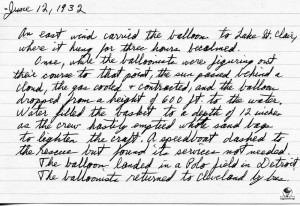 June 12, 1932
An east wind carried the balloon to Lake St. Clair,
where it hung for three hours becalmed.
Once, while the balloonists were figuring out
their course to that point, the sun passed behind a
cloud, the gas cooled & contracted, and the balloon
dropped from a height of 600 ft. to the water.
Water filled the basket to a depth of 12 inches
as the crew hastily emptied whole sand bags
to lighten the craft. A speedboat dashed to
the rescue but found its services not needed.
The balloon landed in a Polo field in Detroit
The balloonists returned to Cleveland by bus.